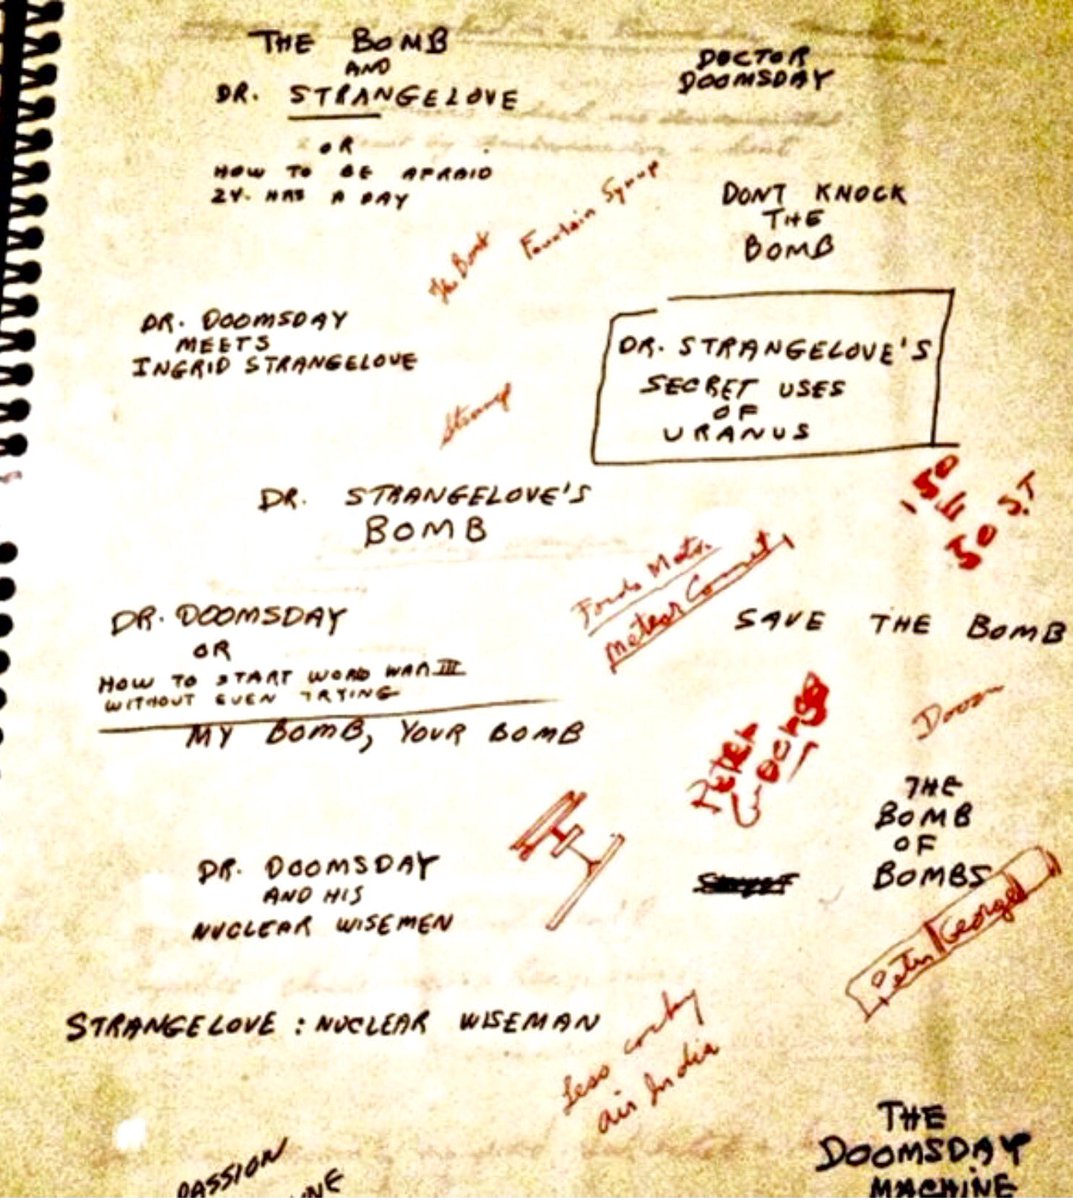 THE BOMB
AND
DR. STRANGELOVE
OR
HOW TO BE AFRAID
24 HRS A DAY
DOCTOR
DOOMSDAY
DONT KNOCK
THE
BOMB
The Bomb
Fountain Syrup
DR. DOOMSDAY
MEETS
INGRID STRANGELOVE
DR. STRANGELOVE'S
SECRET USES
OF
URANUS
Strange
DR. STRANGELOVE'S
BOMB
150
50 S.T
Meteor Comet
DR. DOOMSDAY
OR
HOW TO START WORD WAR III
WITHOUT EVEN TRYING
SAVE THE BOMB
MY BOMB, YOUR BOMB
Doom
PETER
GEORGE
THE
BOMB
OF
BOMBS
DR. DOOMSDAY
AND HIS
NUCLEAR WISEMEN
Peter George
STRANGELOVE : NUCLEAR WISEMAN
Less
air India
PASSION
THE
DOOMSDAY
MACHINE